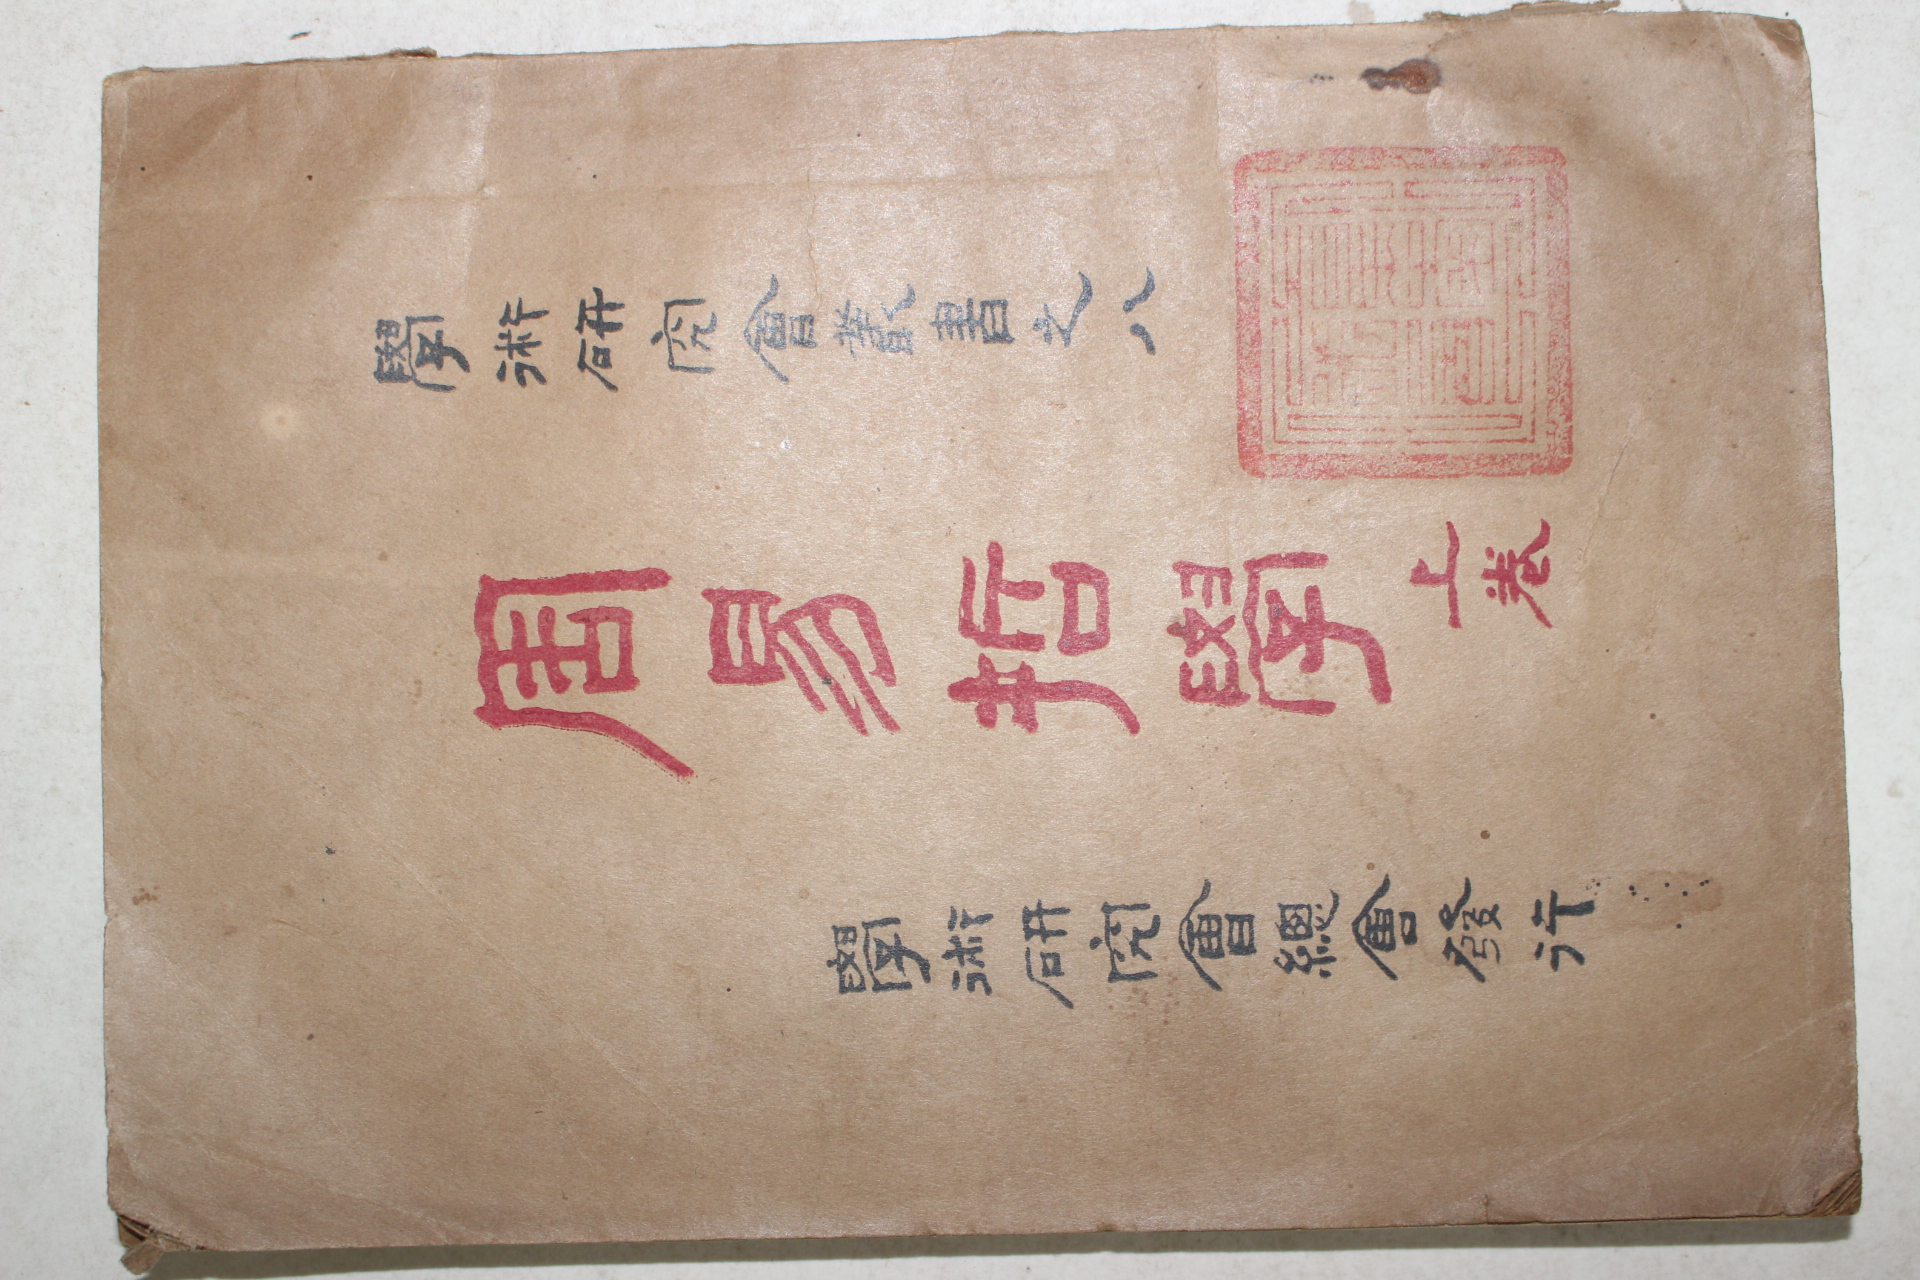 學術研究會叢書之八
周易哲學上卷
學術研究會總會發行